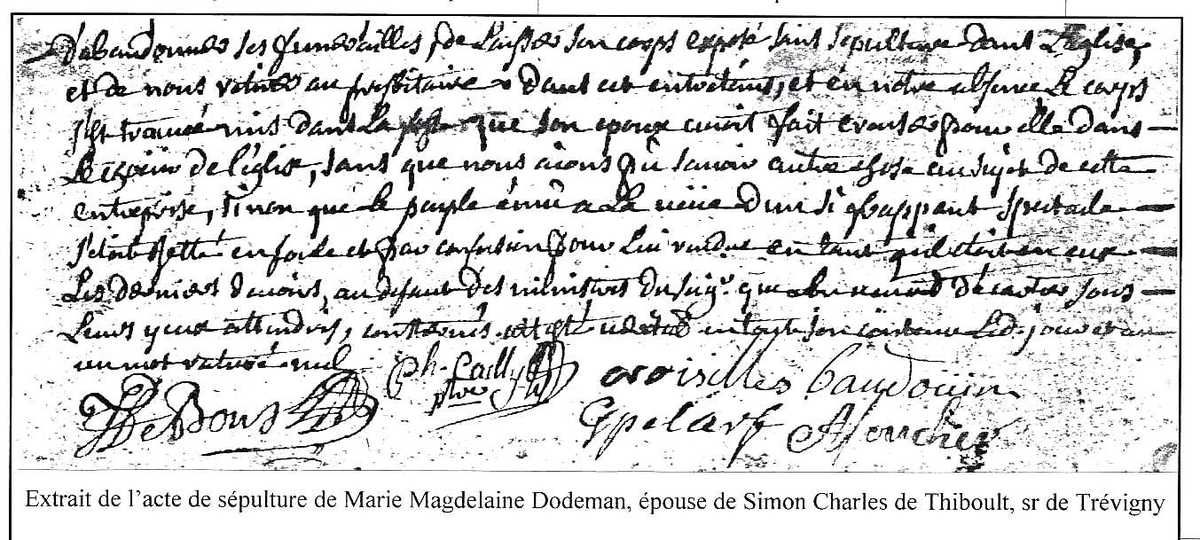 D'abandonner ses funerailles, de laisser son corps exposé sans sepulture dans L'eglise,
et de nous retirer au presbitaire. Dans cet entretems, et en notre absence Le corps
s'est trouvé mis dans La fosse que son epoux avoit fait creuser pour elle dans
Le chœur de l'eglise, sans que nous aions pu savoir autre chose au sujet de cette
entreprise, sinon que le peuple emû a La veüe d'un si frappant spectacle
s'etoit jetté en foule et par confusion pour Lui rendre en tant qu'il etoit en eux
Les derniers devoirs, au defaut des ministres du Seigr. que
Leurs yeux attendris, en tout son contenu Led. jour et an
un mot raturé nul
DeBons Ph. Cailly ptre croisilles baudouin
G pelarf A foucher
Extrait de l'acte de sépulture de Marie Magdelaine Dodeman, épouse de Simon Charles de Thiboult, sr de Trévigny